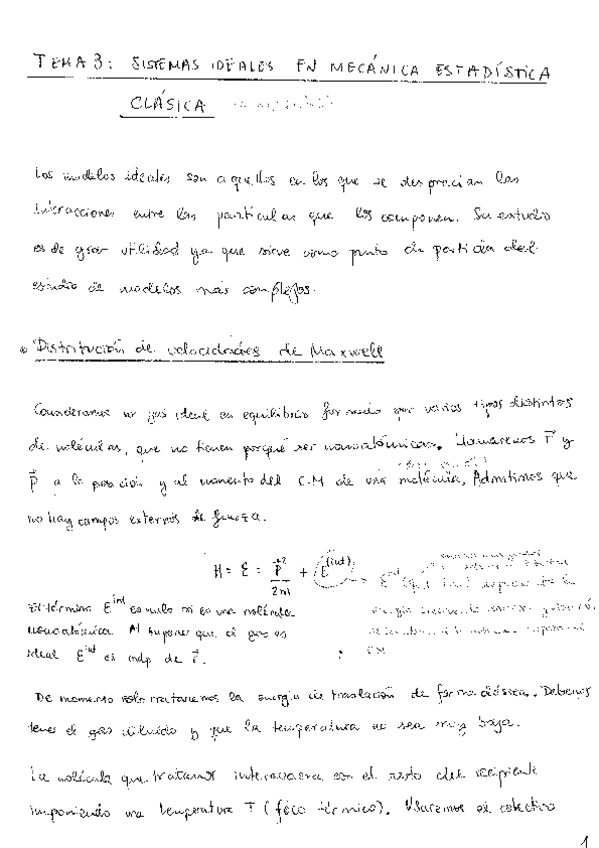 TEMA 3: SISTEMAS IDEALES EN MECÁNICA ESTADÍSTICA
CLÁSICA
Los modelos ideales son aquellos en los que se desprecian las
interacciones entre las partículas que los componen. Su estudio
es de gran utilidad ya que sirve como punto de partida del
estudio de modelos más complejos.
• Distribución de velocidades de Maxwell
Consideramos un gas ideal en equilibrio formado por varios tipos distintos
de moléculas, que no tienen porqué ser monoatómicas. Llamaremos r⃗ y
p⃗ a la posición y al momento del C.M de una molécula. Admitimos que
no hay campos externos de fuerza.
H = E = p⃗²/2m + E^(int)
El término E^int es nulo si es una molécula
monoatómica. Al suponer que el gas es
ideal E^int es indp de r⃗.
De momento solo trataremos la energía de traslación de forma clásica. Debemos
tener el gas diluido y que la temperatura no sea muy baja.
La molécula que tratamos con el resto del recipiente
imponiendo una temperatura T (foco térmico). Usaremos el colectivo
1